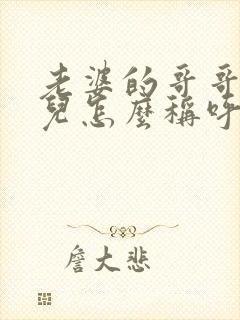 老婆的哥哥
兒怎麼稱呼
詹大悲